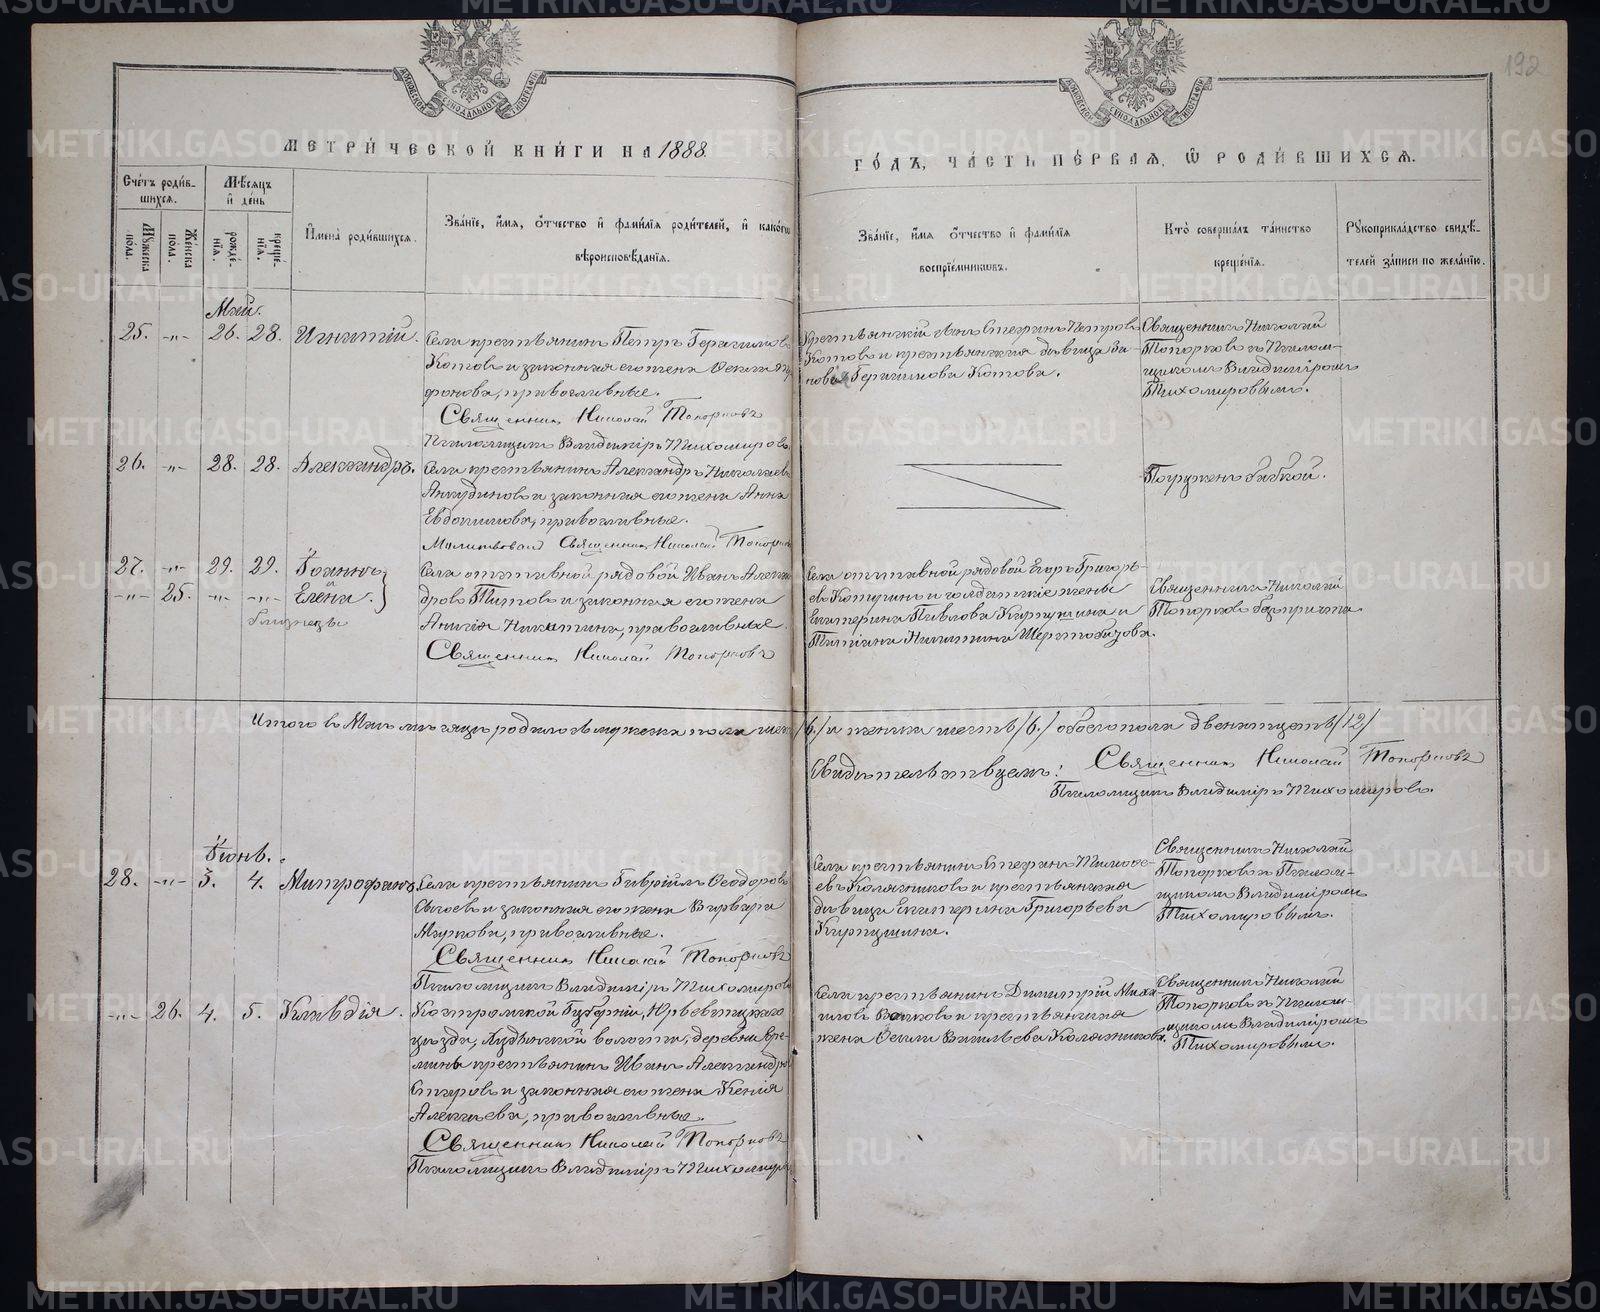 192
МОСКОВСКОЙ СѴНОДАЛЬНОЙ ТИПОГРАФІИ
МОСКОВСКОЙ СѴНОДАЛЬНОЙ ТИПОГРАФІИ
МЕТРИ́ЧЕСКОЙ КНИ́ГИ НА 1888.
ГО́ДЪ, ЧА́СТЬ ПЕ́РВАЯ, Ѿ РОДИ́ВШИХСЯ.
Сче́тъ роди́в-
шихся.
Мꙋжеска пола.
Же́нска пола.
Мѣсяцъ
и де́нь
рожде́-
нія.
креще́-
нія.
Имена̀ роди́вшихся.
Зва́нїе, и́мя, о́тчество и фами́лїя роди́телей, и како́гѡ
вѣроисповѣ́данїя.
Зва́нїе, и́мя о́тчество и фами́лїя
воспрїе́мниковъ.
Кто̀ соверша́лъ та́инство
креще́нїя.
Рꙋкоприкла́дство свидѣ́-
телей за́писи по жела́нїю.
Май.
25. -"- 26. 28. Игнатій.
Села крестьянинъ Петръ Герасимовъ
Котовъ и законная его жена
фонова, православные.
Священникъ Николай Топорковъ
Псаломщикъ Владиміръ Тихомировъ
Крестьянскій сынъ Стефанъ Петровъ
Котовъ и крестьянская дѣвица Зи-
новія Герасимова Котова.
Священникъ Николай
Топорковъ съ Псалом-
щикомъ Владиміромъ
Тихомировымъ.
26. -"- 28. 28. Александръ.
Села крестьянинъ Александръ Николаевъ
Анкудиновъ и законная его жена Анна
Евдокимова, православные.
Молитвовалъ Священникъ Николай Топорковъ
Погруженъ бабкой.
27. -"- 29. 29. Іоаннъ
-"- 25. -"- -"- Елена.
близнецы
Села отставной рядовой Иванъ Алексан-
дровъ Титовъ и законная его жена
Анисія Никитина, православные.
Священникъ Николай Топорковъ
Села отставной рядовой Егоръ Григорь-
евъ и солдатскіе жены
Екатерина Павлова Карпушина и
Татіана Никитина
Священникъ Николай
Топорковъ безъ причта.
Итого въ Маѣ мѣсяцѣ родилось мужска пола шесть /6./ и женска шесть /6./ обоего пола двенатцеть /12/
Свидѣтельствуемъ: Священникъ Николай Топорковъ
Псаломщикъ Владиміръ Тихомировъ.
Іюнь.
28. -"- 3. 4. Митрофанъ.
Села крестьянинъ Гавріилъ Ѳеодоровъ
Сысоевъ и законная его жена Варвара
Маркова, православные.
Священникъ Николай Топорковъ
Псаломщикъ Владиміръ Тихомировъ
Села крестьянинъ Стефанъ Тимоѳе-
евъ Колясниковъ и крестьянская
дѣвица Екатерина Григорьева
Карпушина.
Священникъ Николай
Топорковъ съ Псалом-
щикомъ Владиміромъ
Тихомировымъ.
-"- 26. 4. 5. Клавдія.
Костромской Губерніи, Юрьевецкаго
уѣзда, волости, деревни Ере-
мина крестьянинъ Иванъ Александровъ
Старовъ и законная его жена Ксенія
Алексѣева, православные.
Священникъ Николай Топорковъ
Псаломщикъ Владиміръ Тихомировъ
Села крестьянинъ Димитрій Миха-
иловъ и крестьянская
жена Васильева Колясникова.
Священникъ Николай
Топорковъ съ Псалом-
щикомъ Владиміромъ
Тихомировымъ.
METRIKI.GASO-URAL.RU